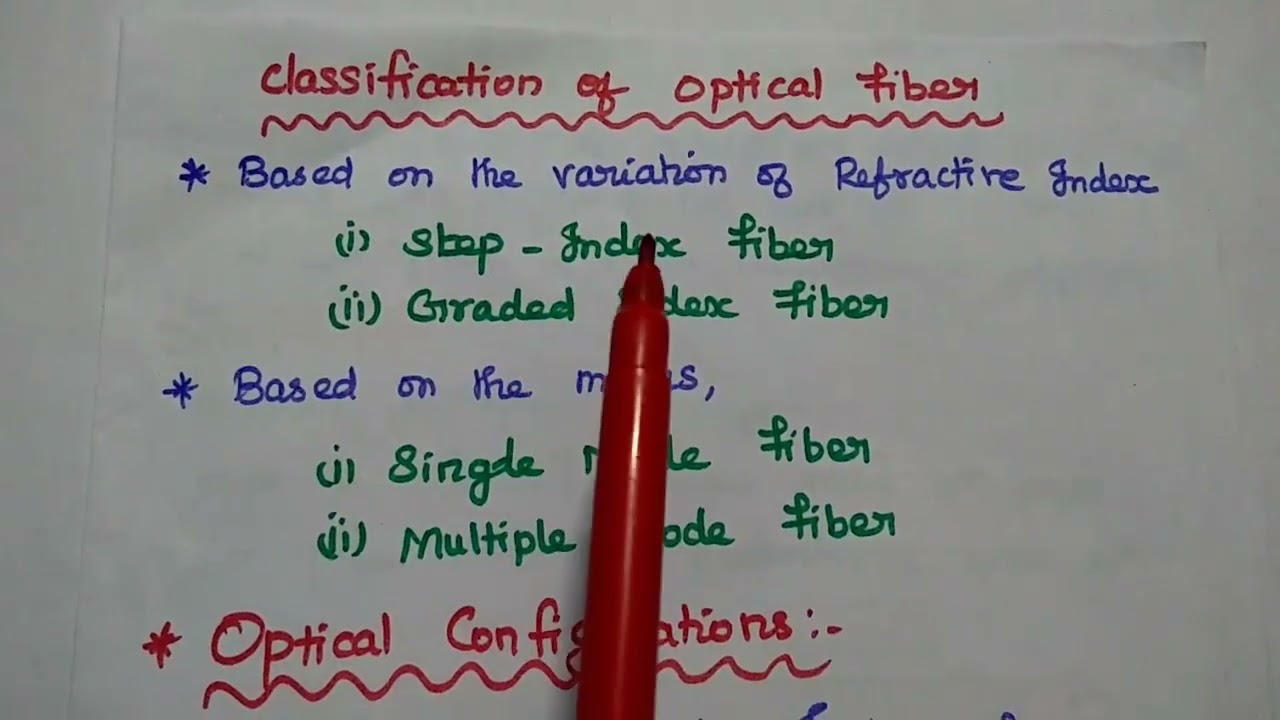 Classification of Optical Fiber
* Based on the variation of Refractive Index
(i) Step - Index Fiber
(ii) Graded Fiber
* Based on the
(i) Single Fiber
(ii) Multiple Fiber
* Optical :-